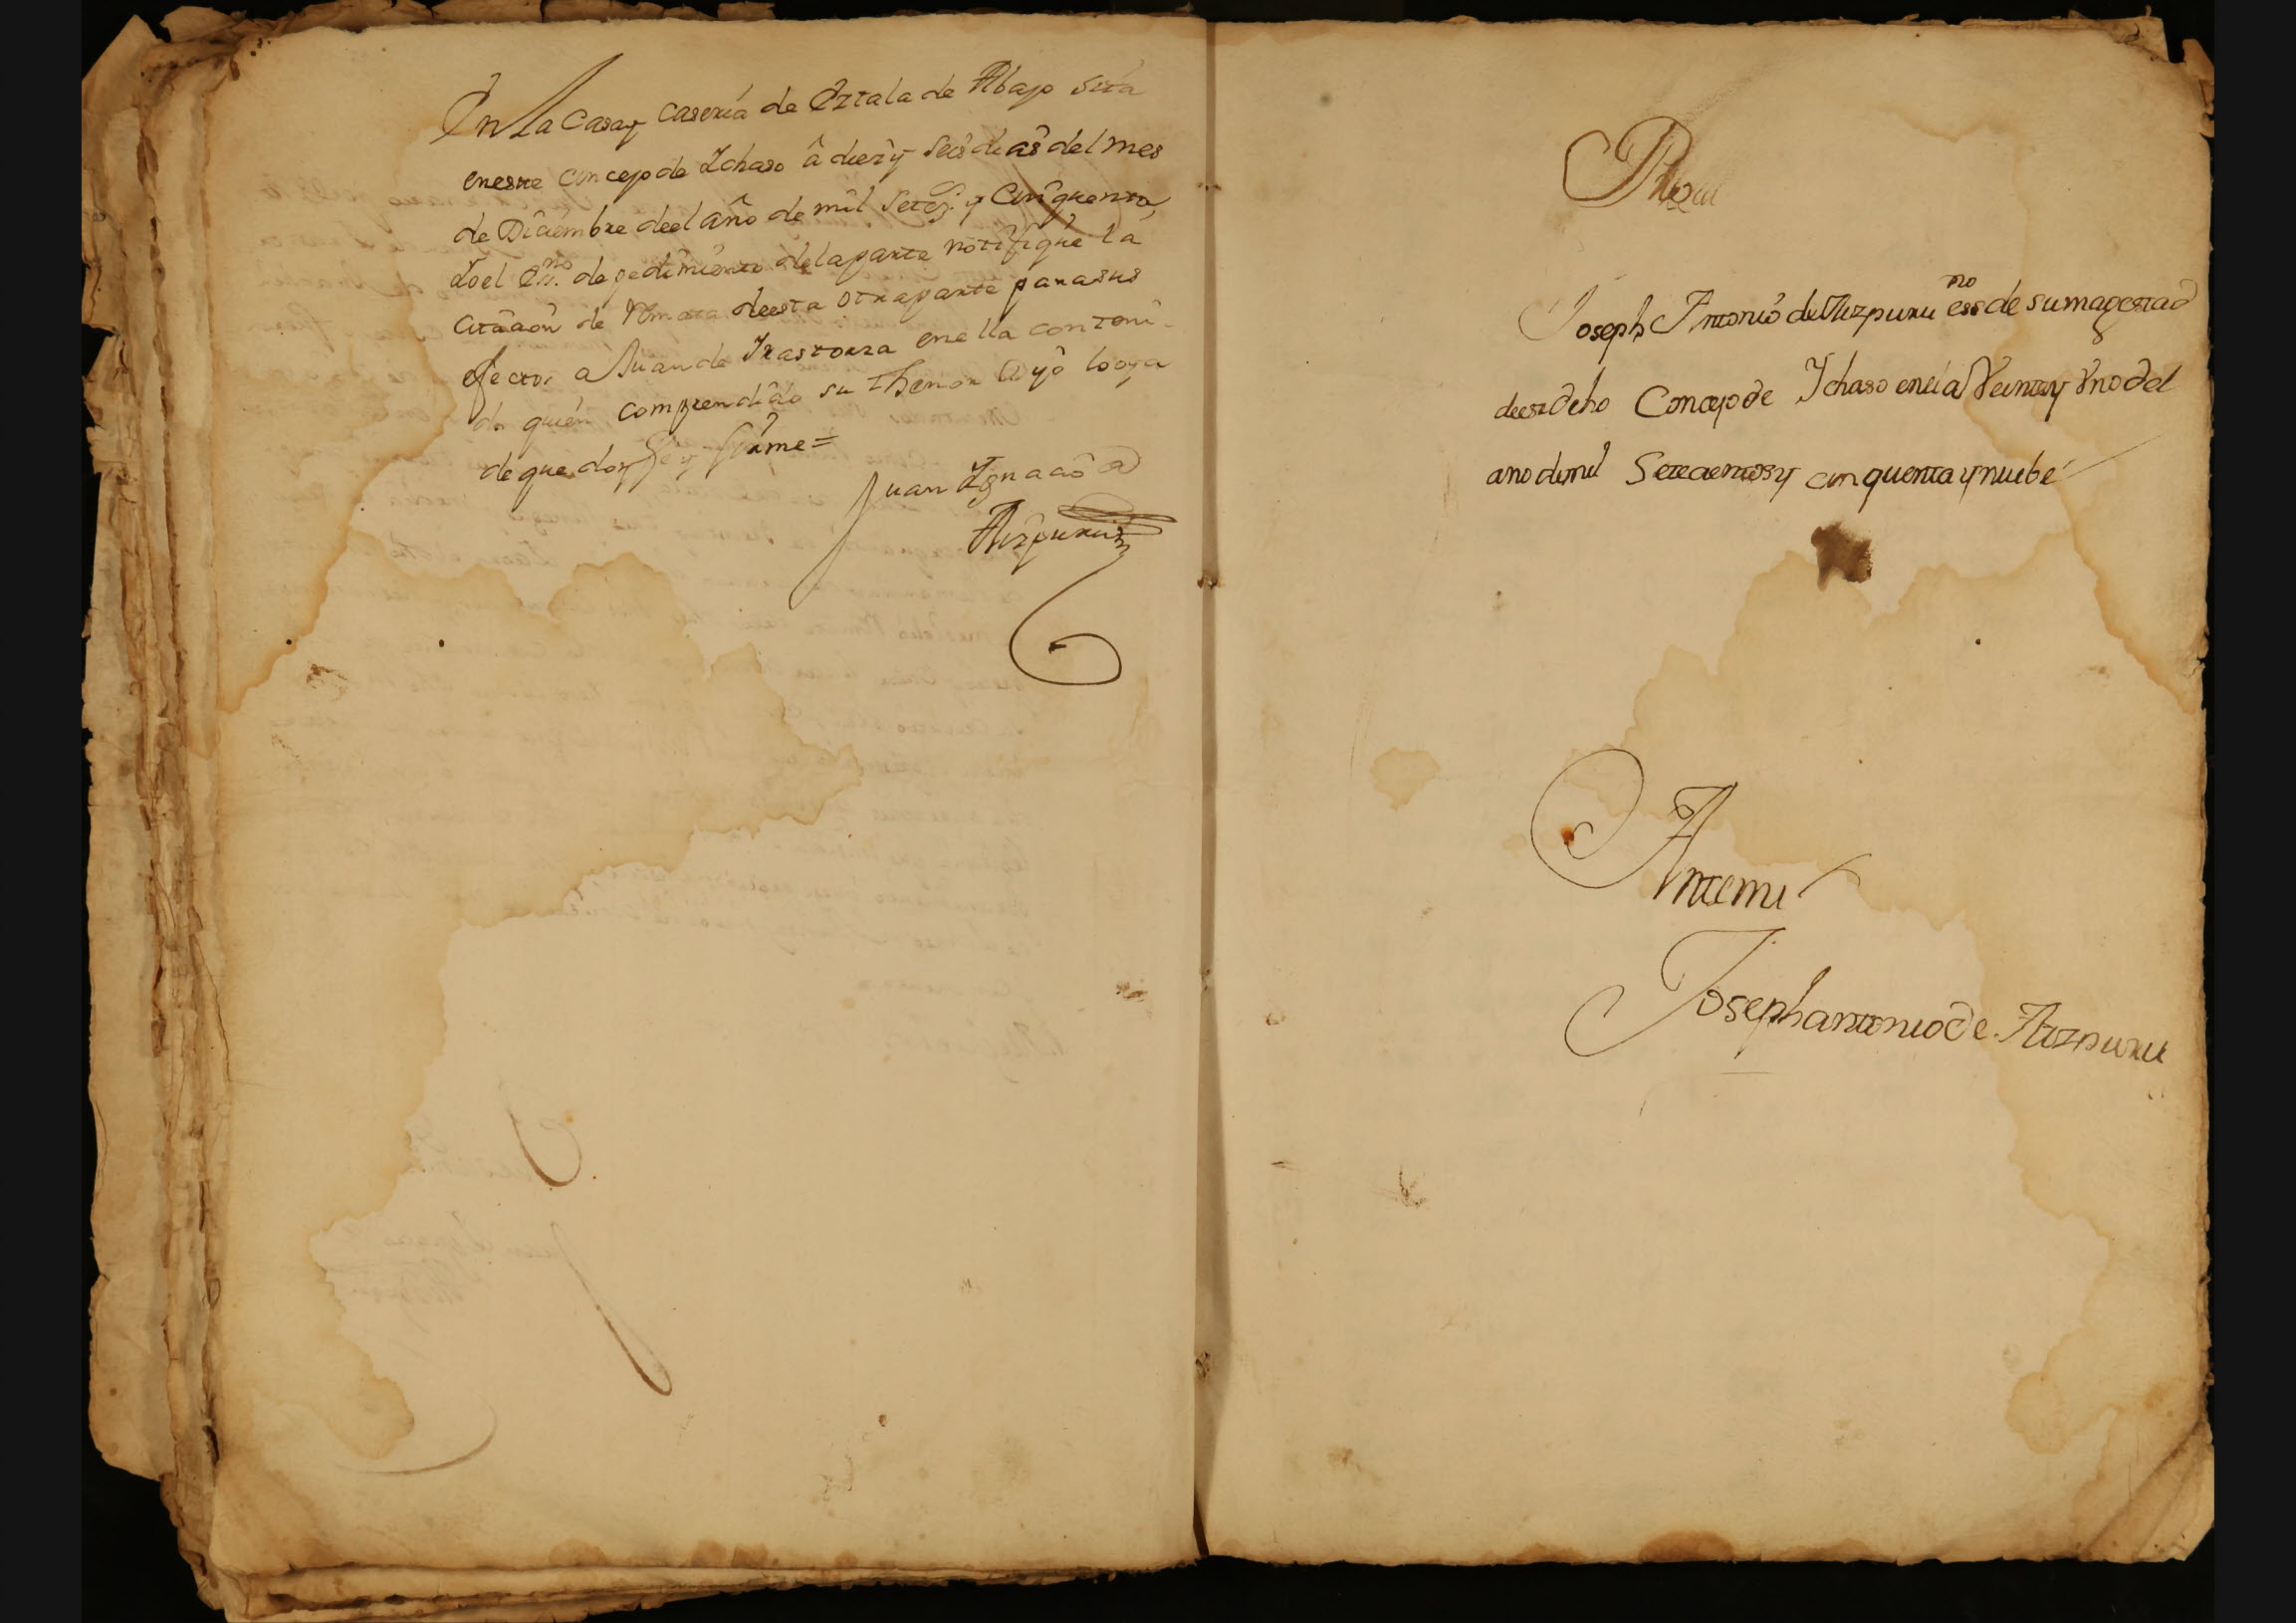 En la Casa y Caseria de Oztala de Abajo sita
en este concejo de Ichaso â diez y seis dias del mes
de Diciembre deel año de mil Setez.s y Cinquenta,
Yo el Ess.no de pedimiento de la parte notifique la
Citacion de deesta otra parte para sus
efectos a Juan de Irastorza en ella conteni-
do quien comprendido su thenor Oyô
de que doy fee y firme=
Juan Ignacio de
Aizpuru
Joseph Antonio de Aizpuru essno de su magestad
deestdcho Concejo de Ichaso en el a Veintey Vno del
ano de mil Setecientos y cinquenta y nuebe
Antemi
Joseph antonio de Aizpuru